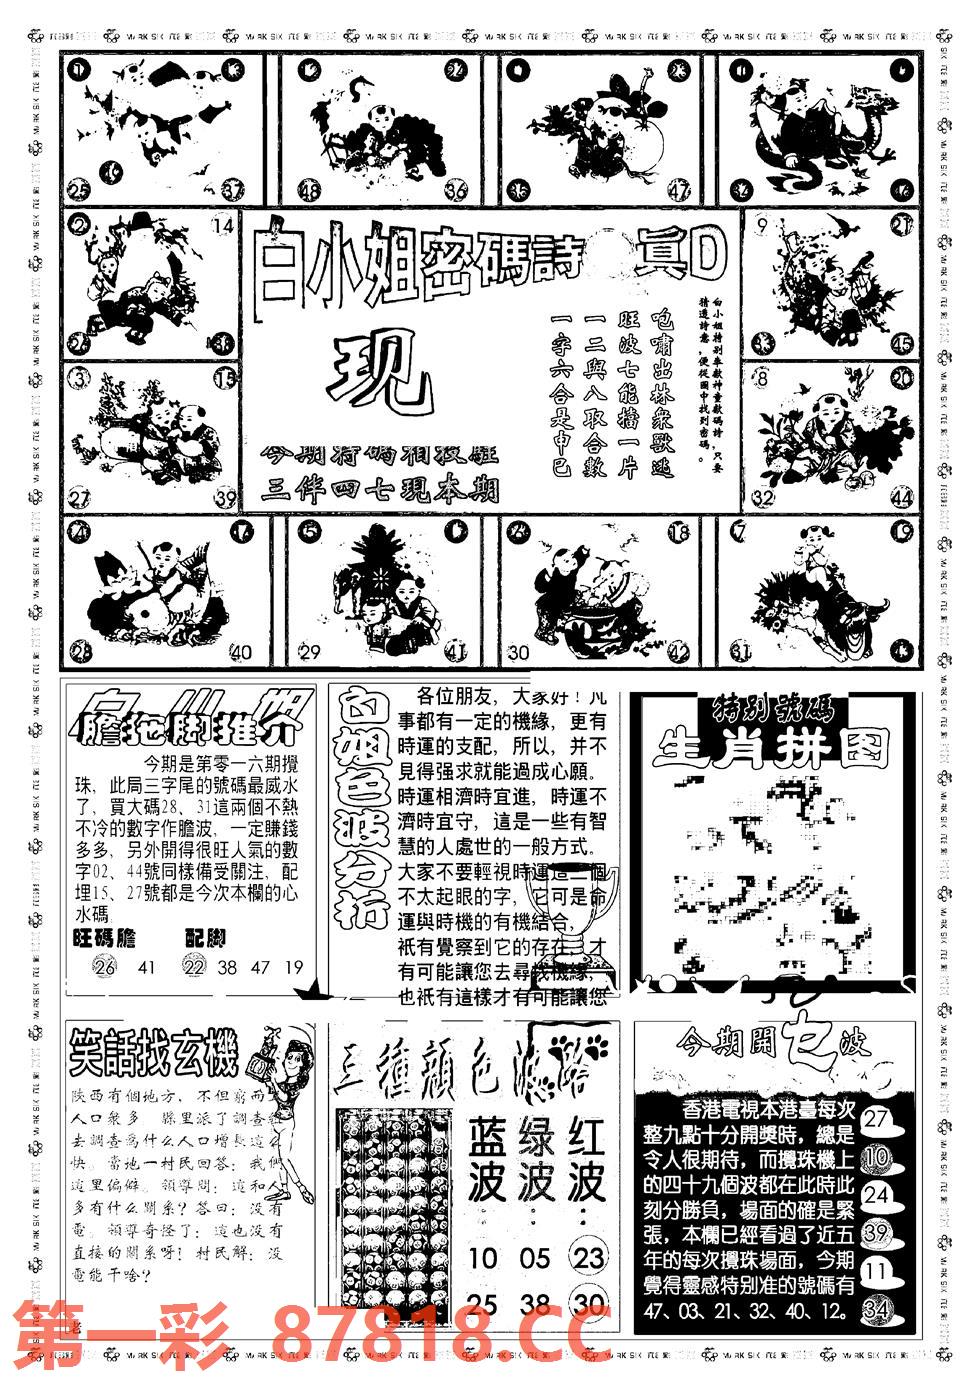 25
37
48
36
35
47
白小姐密碼詩
真D
2
14
9
21
33
45
现
白小姐特别奉獻神童數碼詩，只要
猜透詩意，便從圖中找到密碼。
咆嘯出林衆獸逃
旺波七能擋一片
一二與八取合數
一字六合是申巳
今期特碼相投註
三伴四七現本期
3
15
27
39
8
20
32
44
28
40
5
29
41
18
30
42
7
19
31
膽拖脚推介
今期是第零一六期攪
珠，此局三字尾的號碼最威水
了，買大碼28、31這兩個不熱
不冷的數字作膽波，一定賺錢
多多，另外開得很旺人氣的數
字02、44號同樣備受關注，配
埋15、27號都是今次本欄的心
水碼
旺碼膽 配脚
26 41 22 38 47 19
白姐色波分析
各位朋友，大家好！凡
事都有一定的機緣，更有
時運的支配，所以，并不
見得强求就能過成心願。
時運相濟時宜進，時運不
濟時宜守，這是一些有智
慧的人處世的一般方式。
大家不要輕視時運這一個
不太起眼的字，它可是命
運與時機的有機結合，
衹有覺察到它的存在，才
有可能讓您去尋找機緣，
也衹有這樣才有可能讓您
特别號碼
生肖拼图
笑話找玄機
陝西有個地方，不但窮而
人口衆多 縣里派了調查組
去調查爲什么人口增長這么
快。當地一村民回答：我們
這里偏僻。領導問：這和人
多有什么關系？答曰：没有
電。領導奇怪了：這也没有
直接的關系呀！村民解：没
電能干啥？
三種顔色波路
蓝波： 绿波： 红波：
10 05 23
25 38 30
今期開七波
香港電視本港臺每次
整九點十分開獎時，總是
令人很期待，而攪珠機上
的四十九個波都在此時此
刻分勝負，場面的確是緊
張，本欄已經看過了近五
年的每次攪珠場面，今期
覺得靈感特别准的號碼有
47、03、21、32、40、12。
27
10
24
39
11
34
老
第一彩 87818.CC